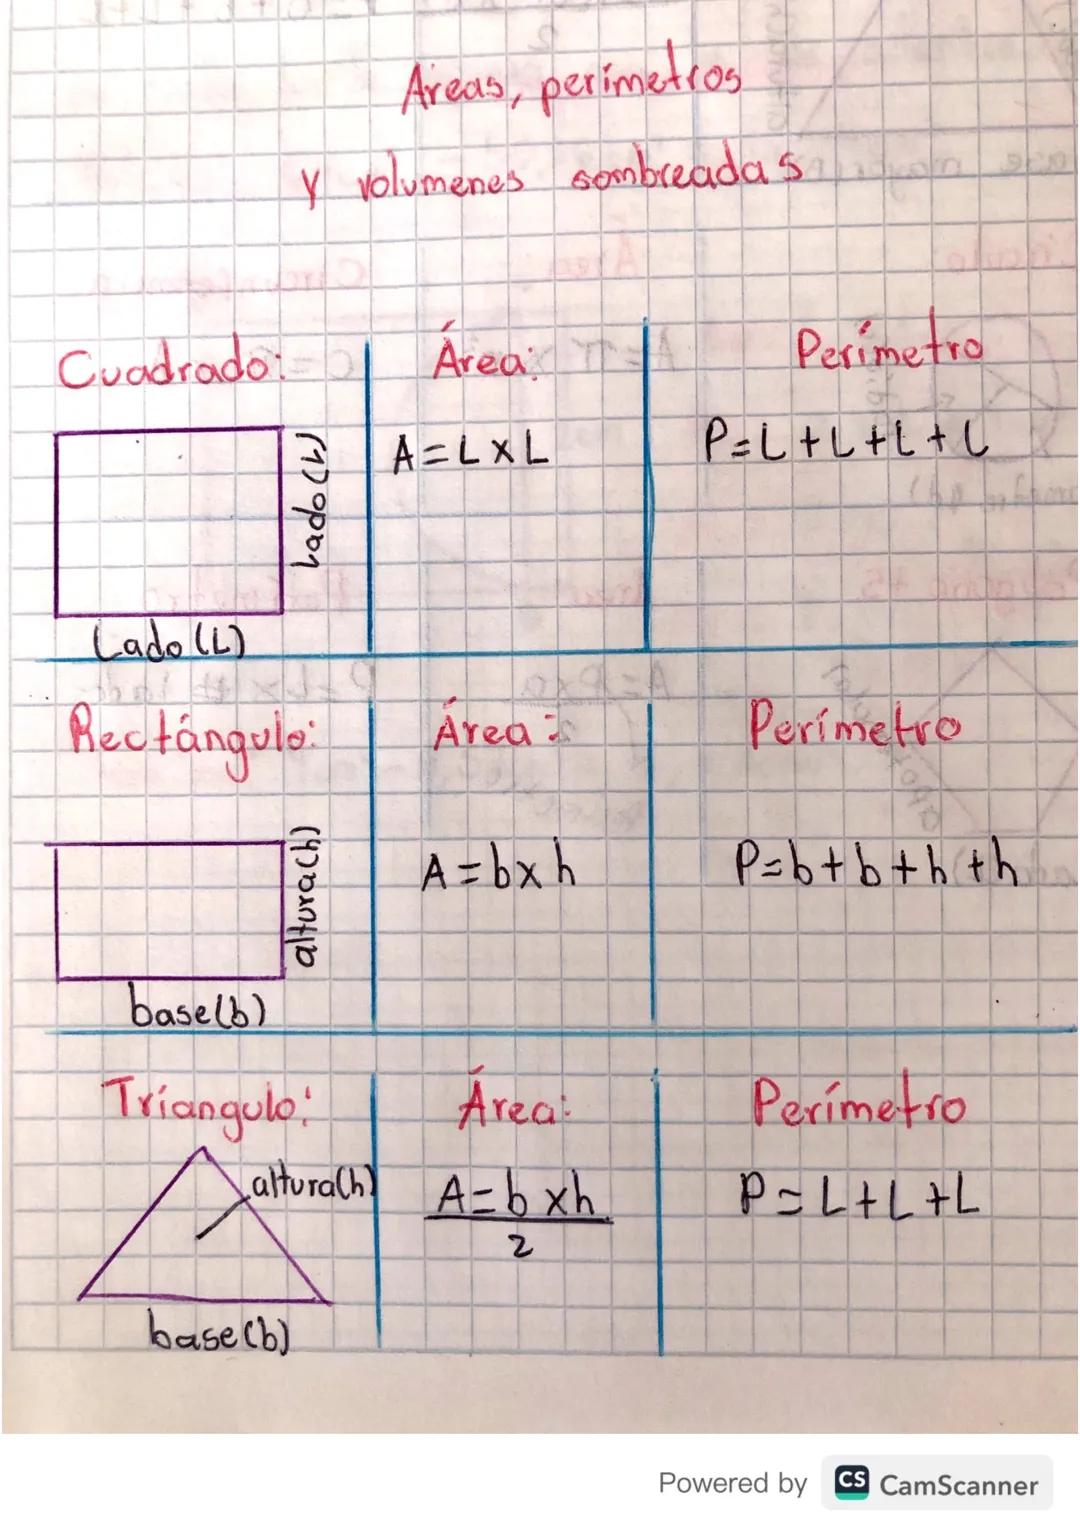 Áreas, perímetros
y volumenes sombreadas
Cuadrado:
Área:
Perímetro
Lado(L)
A=LxL
P=L+L+L+L
Lado(L)
Rectángulo:
Área:
Perímetro
altura(h)
A=bxh
P=b+b+h+h
base(b)
Tríangulo:
Área:
Perímetro
altura(h)
A=bxh
2
P=L+L+L
base(b)
Powered by CS CamScanner